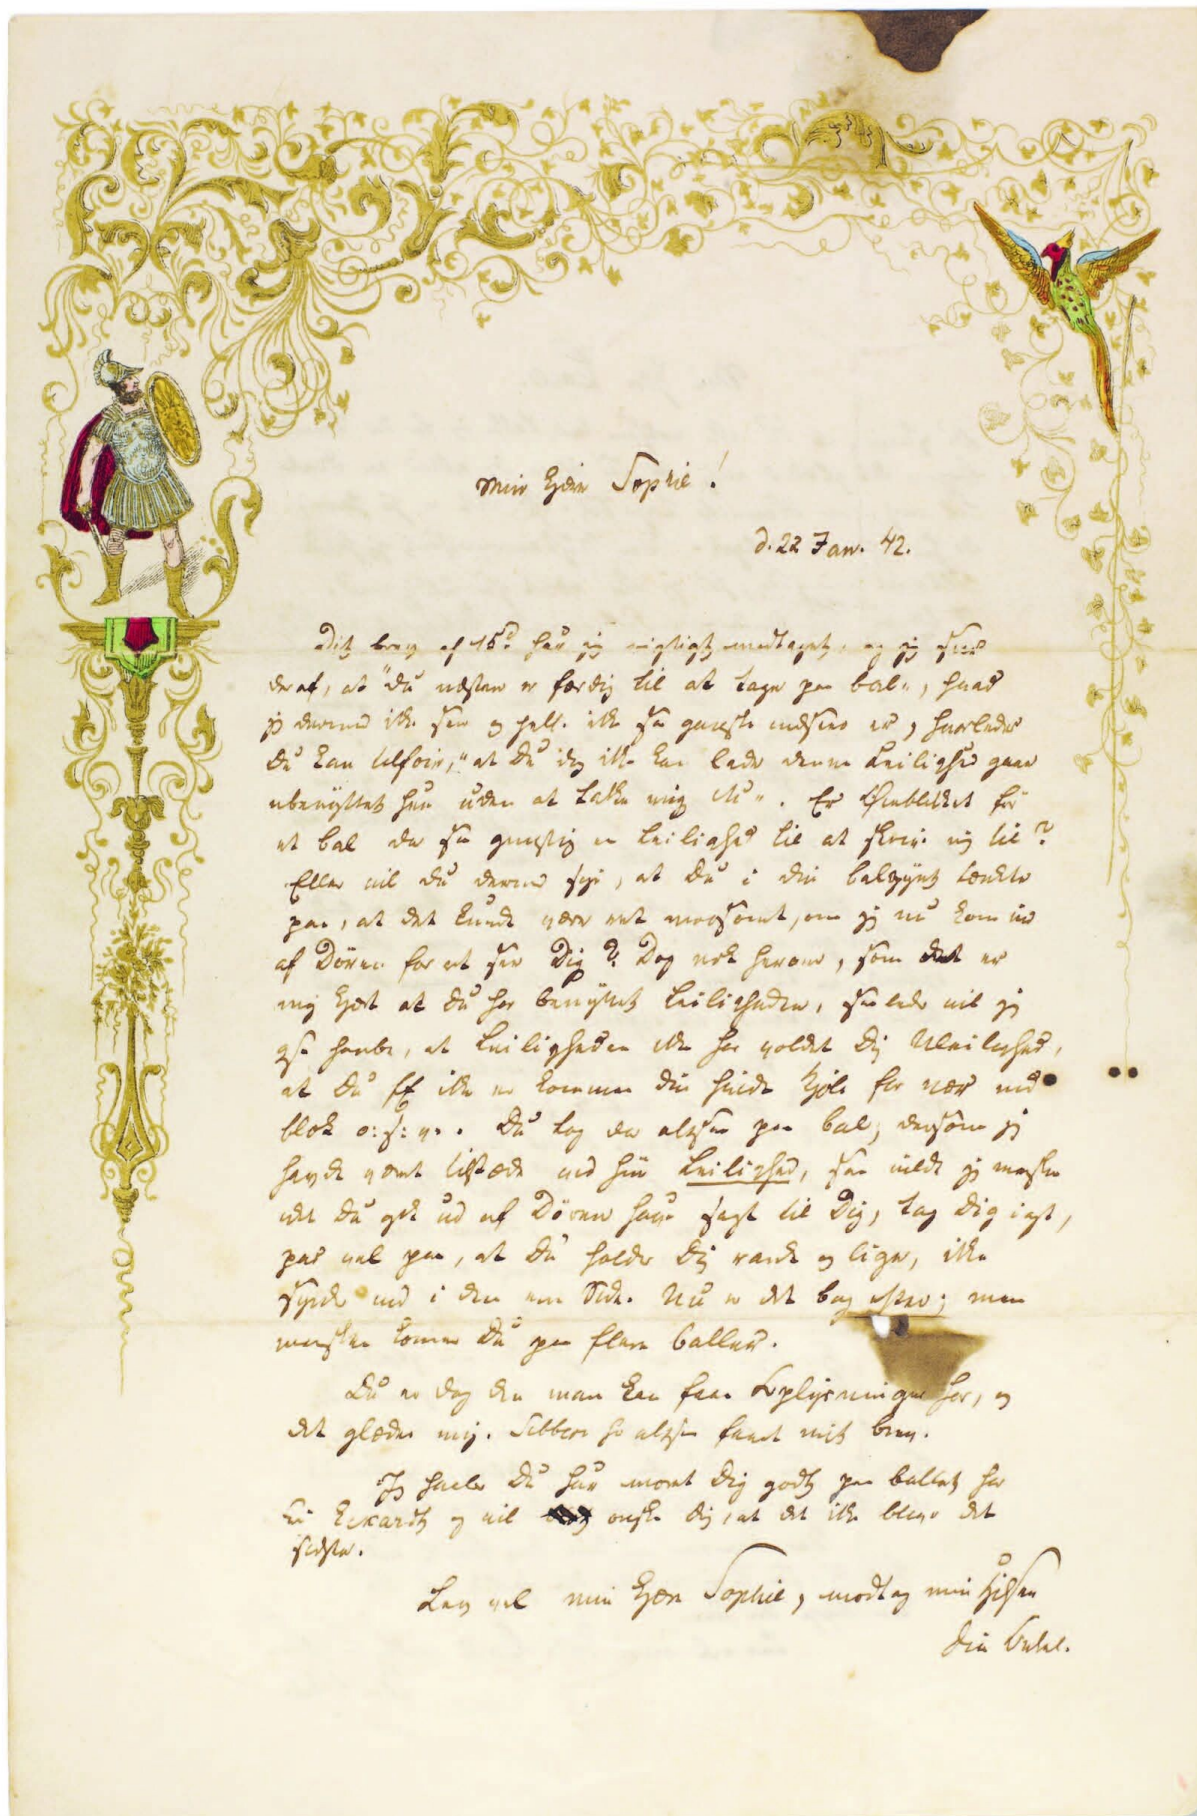 Min kjære Sophie!
d. 22 Jan. 42.
Dit brev af 15d har jeg rigtigt modtaget, og jeg seer
deraf, at "du næsten er færdig til at tage paa bal", hvad
jeg derimod ikke seer og hell. ikke saa ganske indseer er, hvorledes
du kan tilføie, "at Du dog ikke kan lade denne Leilighed gaae
ubenyttet hen uden at takke mig etc". Er Øieblikket før
et bal da saa gunstig en Leilighed til at skrive mig til?
Eller vil du dermed sige, at Du i din baldragt tænkte
paa, at det kunde være ret morsomt, om jeg nu kom ind
af Døren for at see Dig? Dog nok herom, som det er
mig kjært at Du har benyttet Leiligheden, saaledes vil jeg
ogsaa haabe, at Leiligheden ikke har voldet Dig Uleilighed,
at Du ff ikke er kommen din hvide kjole for nær med
blæk o: s: v: . Du tog da altsaa paa bal; dersom jeg
havde været tilstede ved hiin Leilighed, saa vilde jeg maaskee
idet Du gik ud af Døren have sagt til Dig, tag Dig iagt,
pas vel paa, at Du holder Dig rank og lige, ikke
synker ned i den ene Side. Nu er det bag efter; men
maaskee kommer Du paa flere baller.
Du er dog den man kan faae Oplysninger hos, og
det glæder mig. Sibbern har altsaa faaet mit brev.
Jeg haaber Du har moret Dig godt paa ballet hos
Eckardt og vil ønske dig, at det ikke bliver det
sidste.
Lev vel min kjære Sophie, modtag min Hilsen
din Onkel.